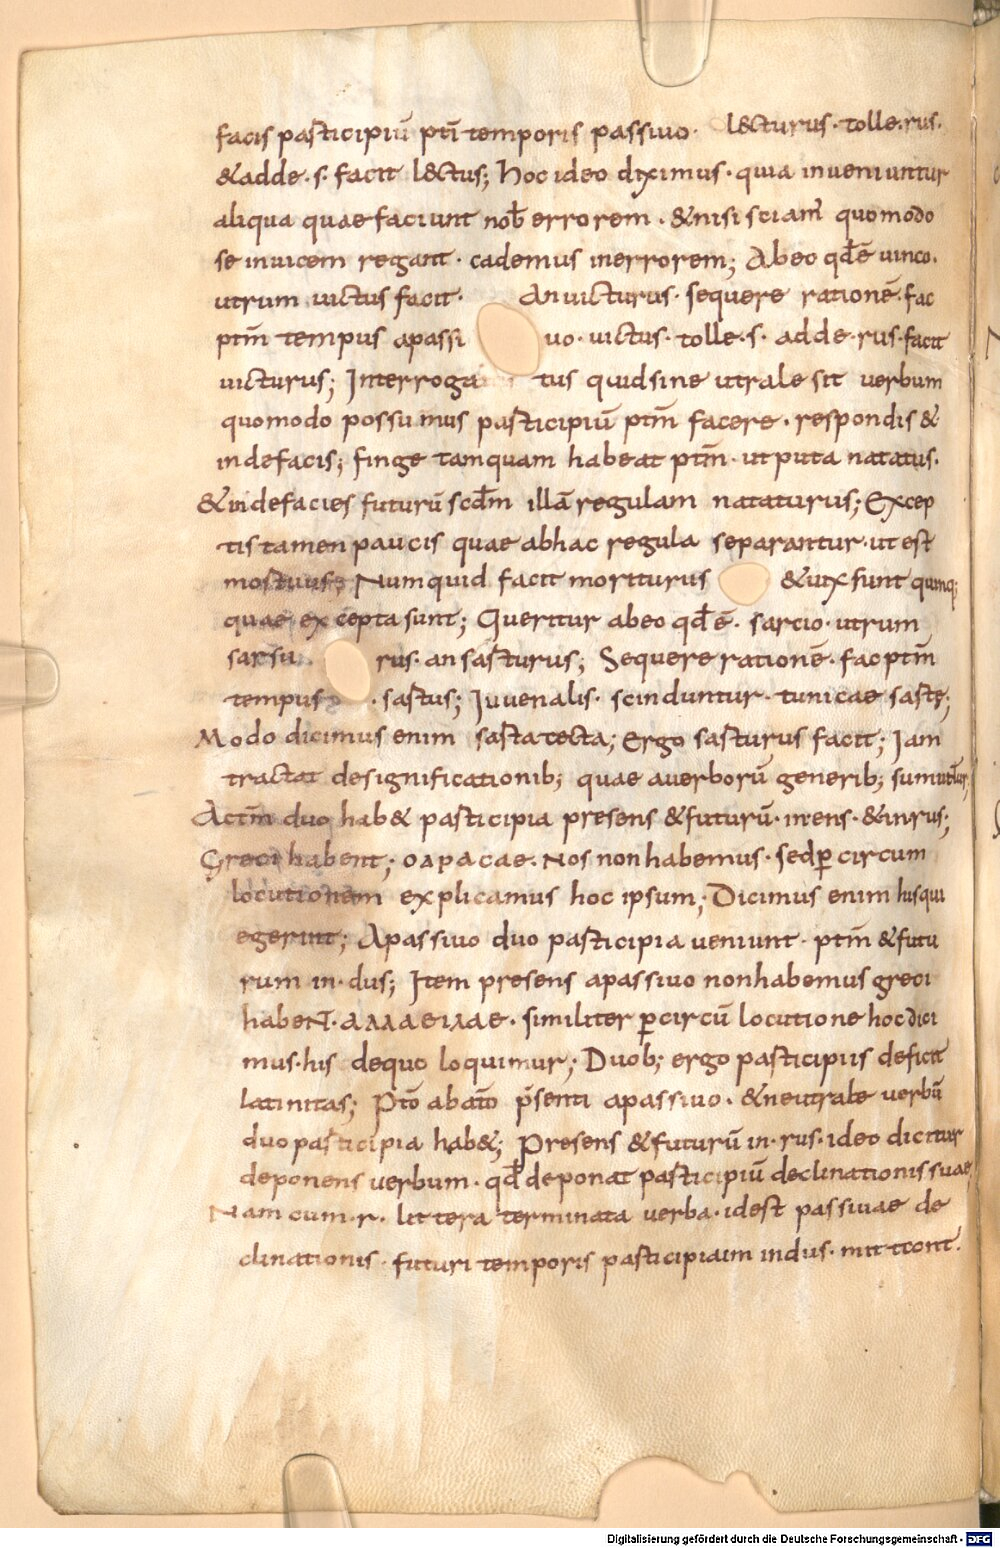 facis participiū ptī temporis passivo· lecturus· tolle·rus·
&adde·s· facit l&tus; hoc ideo diximus· quia inveniuntur
aliqua quae faciunt nob̄ errorem· &nisi sciam̄ quomodo
se invicem regant· cademus inerrorem; Abeo qd̄ē vinco·
utrum victus facit· An victurus· sequere rationē· fac
ptm̄ tempus apassi vo· victus· tolle·s· adde·rus·facit
victurus; Interroga tus quid sine utrale sit verbum
quomodo possumus participiū ptm̄ facere· respondis &
indefacis; finge tamquam habeat ptm̄· utputa natatus·
&indefacies futurū scd̄m illā regulam nataturus; Excep
tis tamen paucis quae abhac regula separantur·ut est
mostuus; Numquid facit moriturus &uix sunt quinq;
quae excepta sunt; Queritur abeo qd̄ ē· sarcio· utrum
sarsu rus· an sarturus; Sequere rationē· fac ptm̄
tempus · sartus; Iuvenalis· scinduntur· tunicae sarte;
Modo dicimus enim sarta tecta; Ergo sarturus facit; Iam
tractat designificationib; quae averborū generib; sumuntur;
Actm̄ duo hab& participia presens &futurū· inens· &inrus;
Greci habent; οαραcαε· Nos non habemus· sedꝑ circum
locutionem explicamus hoc ipsum; Dicimus enim hisqui
egerunt; Apassivo duo participia veniunt· ptm̄ &futu
rum in·dus; Item presens apassivo nonhabemus greci
habent·αλλαειλαε· similiter ꝑcircū locutione hoc dici
mus·his dequo loquimur; Duob; ergo participiis deficit
latinitas; Ptō abactō p̄senti apassivo· &neutrale verbū
duo participia hab&; Presens &futurū in·rus· ideo dicitur
deponens verbum· qd̄ deponat participiū declinationis suae
Nam cum·r· littera terminata verba· idest passivae de
clinationis· futuri temporis participiaim indus· mittont·
Digitalisierung gefördert durch die Deutsche Forschungsgemeinschaft - DFG